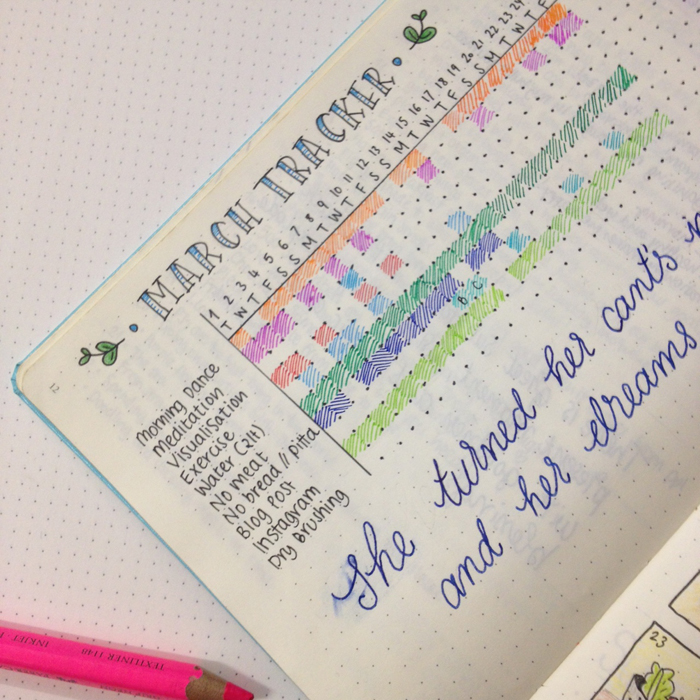 MARCH TRACKER
1 2 3 4 5 6 7 8 9 10 11 12 13 14 15 16 17 18 19 20 21 22 23 24
T W T F S S M T W T F S S M T W T F S S M T W T F
Morning Dance
Meditation
Visualisation
Exercise
Water (2lt)
No meat
No bread // pitta
Blog Post
Instagram
Dry Brushing
B C
She turned her can'ts
and her dreams
12
TEXTLINER 1148
INKJET
23